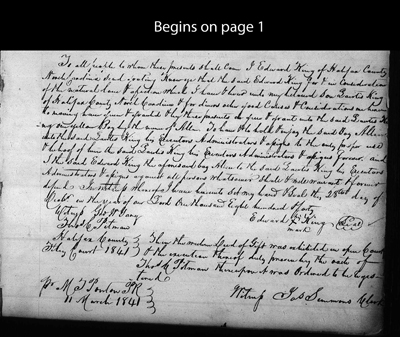 Begins on page 1
To all people to whom these presents shall Come I Edward King of Halifax County
North Carolina send greeting Know ye that the said Edward King for & in Consideration
of the natural love & affection which I have & bear unto my beloved Son
of Halifax County North Carolina & for divers other good Causes & Considerations me hereunto
moving have given & granted & by these presents do give & grant unto the said King
my yellow Boy by the name of Allen To have & to hold & enjoy the said Boy Allen
unto King his Executors Administrators & assigns to the only proper use
& behoof of him the said King his Executors Administrators & assigns forever and
I the said Edward King the aforesaid boy Allen to the said King his Executors
Administrators & assigns against all persons whatsoever shall & will warrant & forever
defend In witness whereof I have hereunto set my hand & Seal the 28th day of
in the year of our Lord One thousand Eight hundred & forty
Witness Edward King Seal
mark
Thos K Pitman
Halifax County Then the within Deed of Gift was exhibited in open Court
Feby Court 1841 & the execution thereof duly proven by the oath of
Thos K Pitman thereupon it was Ordered to be registered
11 March 1841
Witness Jas Simmons Clerk